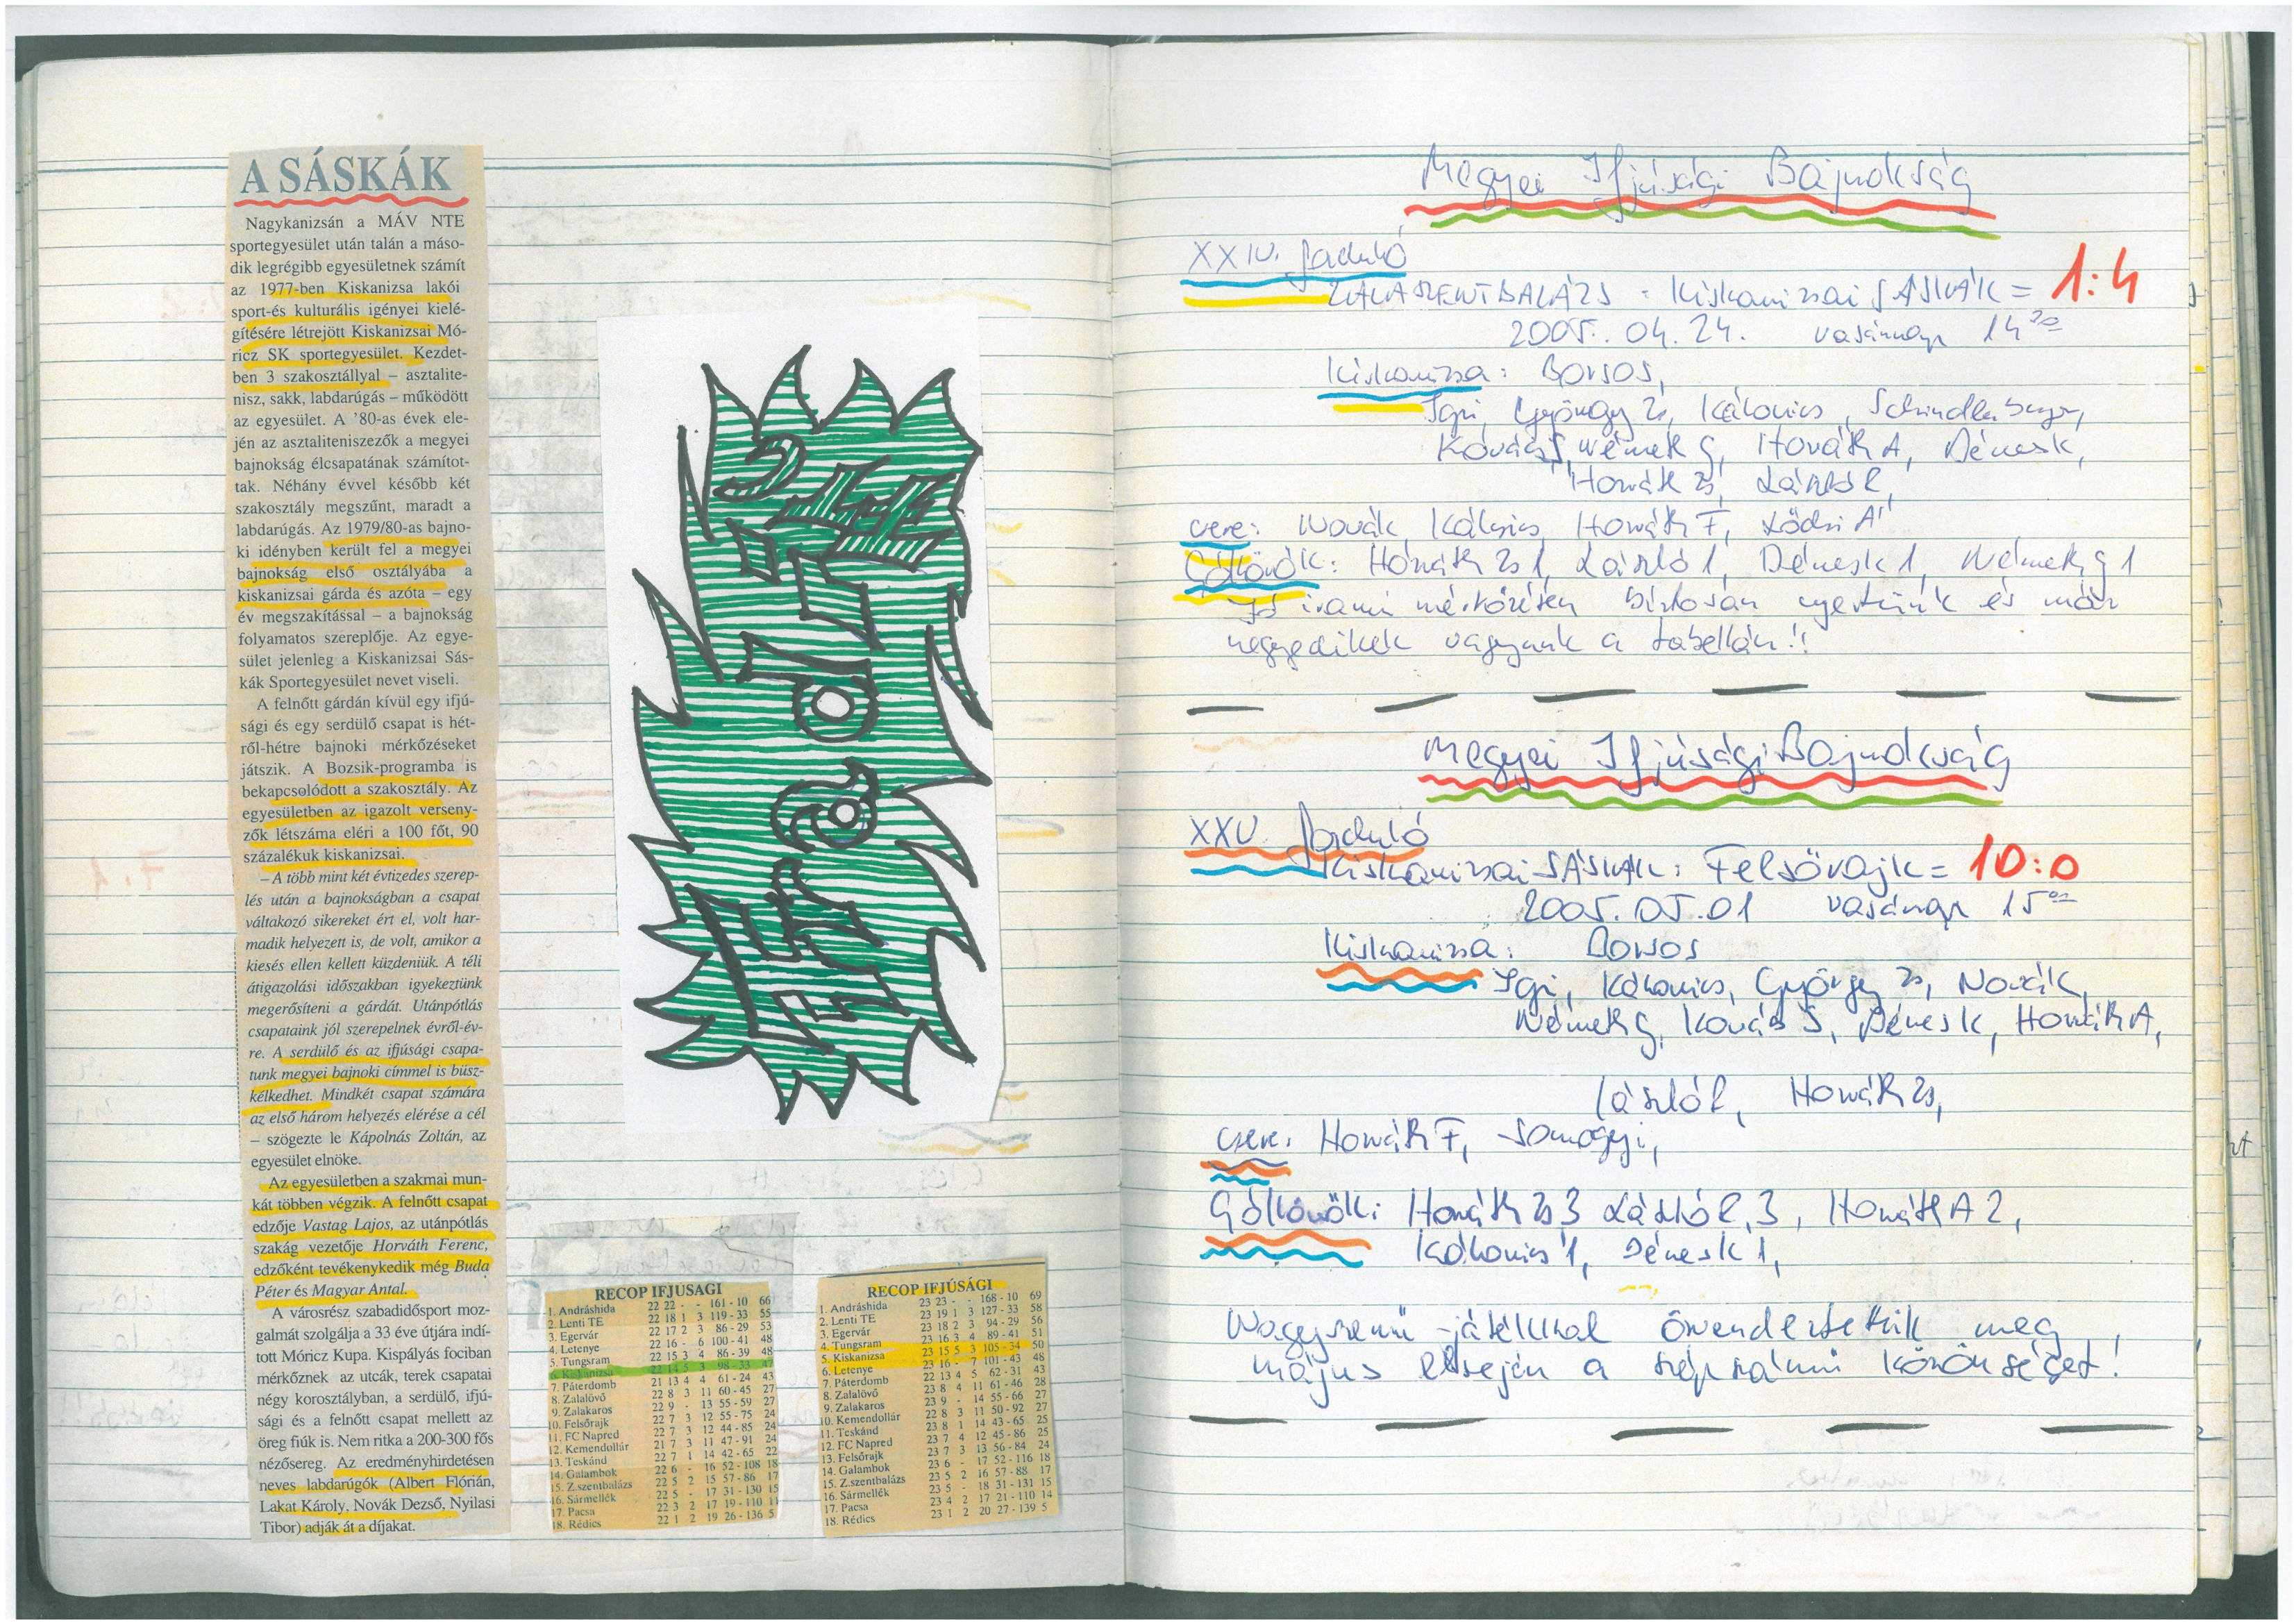 A SÁSKÁK
Nagykanizsán a MÁV NTE
sportegyesület után talán a máso-
dik legrégibb egyesületnek számít
az 1977-ben Kiskanizsa lakói
sport-és kulturális igényei kielé-
gítésére létrejött Kiskanizsai Mó-
ricz SK sportegyesület. Kezdet-
ben 3 szakosztállyal – asztalite-
nisz, sakk, labdarúgás – működött
az egyesület. A '80-as évek ele-
jén az asztaliteniszezők a megyei
bajnokság élcsapatának számítot-
tak. Néhány évvel később két
szakosztály megszűnt, maradt a
labdarúgás. Az 1979/80-as bajno-
ki idényben került fel a megyei
bajnokság első osztályába a
kiskanizsai gárda és azóta – egy
év megszakítással – a bajnokság
folyamatos szereplője. Az egye-
sület jelenleg a Kiskanizsai Sás-
kák Sportegyesület nevet viseli.
A felnőtt gárdán kívül egy ifjú-
sági és egy serdülő csapat is hét-
ről-hétre bajnoki mérkőzéseket
játszik. A Bozsik-programba is
bekapcsolódott a szakosztály. Az
egyesületben az igazolt verseny-
zők létszáma eléri a 100 főt, 90
százalékuk kiskanizsai.
– A több mint két évtizedes szerep-
lés után a bajnokságban a csapat
váltakozó sikereket ért el, volt har-
madik helyezett is, de volt, amikor a
kiesés ellen kellett küzdeniük. A téli
átigazolási időszakban igyekeztünk
megerősíteni a gárdát. Utánpótlás
csapataink jól szerepelnek évről-év-
re. A serdülő és az ifjúsági csapa-
tunk megyei bajnoki címmel is büsz-
kélkedhet. Mindkét csapat számára
az első három helyezés elérése a cél
– szögezte le Kápolnás Zoltán, az
egyesület elnöke.
Az egyesületben a szakmai mun-
kát többen végzik. A felnőtt csapat
edzője Vastag Lajos, az utánpótlás
szakág vezetője Horváth Ferenc,
edzőként tevékenykedik még Buda
Péter és Magyar Antal.
A városrész szabadidősport moz-
galmát szolgálja a 33 éve útjára indí-
tott Móricz Kupa. Kispályás fociban
mérkőznek az utcák, terek csapatai
négy korosztályban, a serdülő, ifjú-
sági és a felnőtt csapat mellett az
öreg fiúk is. Nem ritka a 200-300 fős
nézősereg. Az eredményhirdetésen
neves labdarúgók (Albert Flórián,
Lakat Károly, Novák Dezső, Nyilasi
Tibor) adják át a díjakat.
RECOP IFJUSAGI
1. Andráshida 22 22 - - 161 - 10 66
2. Lenti TE 22 18 1 3 119 - 33 55
3. Egervár 22 17 2 3 86 - 29 53
4. Letenye 22 16 - 6 100 - 41 48
5. Tungsram 22 15 3 4 86 - 39 48
6. Kiskanizsa 22 14 5 3 98 - 33 47
7. Páterdomb 21 13 4 4 61 - 24 43
8. Zalalövő 22 8 3 11 60 - 45 27
9. Zalakaros 22 9 - 13 55 - 59 27
10. Felsőrajk 22 7 3 12 55 - 75 24
11. FC Napred 22 7 3 12 44 - 85 24
12. Kemendollár 21 7 3 11 47 - 91 24
13. Teskánd 22 7 1 14 42 - 65 22
14. Galambok 22 6 - 16 52 - 108 18
15. Z.szentbalázs 22 5 2 15 57 - 86 17
16. Sármellék 22 5 - 17 31 - 130 15
17. Pacsa 22 3 2 17 19 - 110 11
18. Rédics 22 1 2 19 26 - 136 5
RECOP IFJÚSÁGI
1. Andráshida 23 23 - - 168 - 10 69
2. Lenti TE 23 19 1 3 127 - 33 58
3. Egervár 23 18 2 3 94 - 29 56
4. Tungsram 23 16 3 4 89 - 41 51
5. Kiskanizsa 23 15 5 3 105 - 34 50
6. Letenye 23 16 - 7 101 - 43 48
7. Páterdomb 22 13 4 5 62 - 31 43
8. Zalalövő 23 8 4 11 61 - 46 28
9. Zalakaros 23 9 - 14 55 - 66 27
10. Kemendollár 22 8 3 11 50 - 92 27
11. Teskánd 23 8 1 14 43 - 65 25
12. FC Napred 23 7 4 12 45 - 86 25
13. Felsőrajk 23 7 3 13 56 - 84 24
14. Galambok 23 6 - 17 52 - 116 18
15. Z.szentbalázs 23 5 2 16 57 - 88 17
16. Sármellék 23 5 - 18 31 - 131 15
17. Pacsa 23 4 2 17 21 - 110 14
18. Rédics 23 1 2 20 27 - 139 5
Megyei Ifjúsági Bajnokság
XXIV. forduló
ZALASZENTBALÁZS - Kiskanizsai SÁSKÁK = 1:4
2005. 04. 24. vasárnap 14 30
Kiskanizsa: Borsos,
Igri, György Zs, Kálovics, Schindlenburger,
Kovács S, Németh G, Horváth A, Dénes K,
Horváth Zs, László R,
csere: Novák, Horváth F,
Gólövők: Horváth Zs 1, László 1, Dénes K 1, Németh G 1
Jó iramú mérkőzésen biztosan nyertünk és már
negyedikek vagyunk a tabellán!!
Megyei Ifjúsági Bajnokság
XXV. forduló
Kiskanizsai SÁSKÁK : Felsőrajk = 10:0
2005. 05. 01 vasárnap 15 00
Kiskanizsa: Borsos
Igri, Kálovics, György Zs, Novák,
Németh G, Kovács S, Dénes K, Horváth A,
László R, Horváth Zs,
csere: Horváth F, Somogyi,
Gólövők: Horváth Zs 3 László R, 3, Horváth A 2,
Kálovics 1, Dénes K 1,
Nagyszerű játékkal örvendeztettük meg
május elsején a szépszámú közönséget!